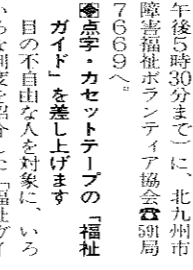 午後5時30分まで）に、北九州市
障害福祉ボランティア協会☎591局
7669へ。
点字・カセットテープの「福祉
ガイド」を差し上げます
目の不自由な人を対象に、いろ